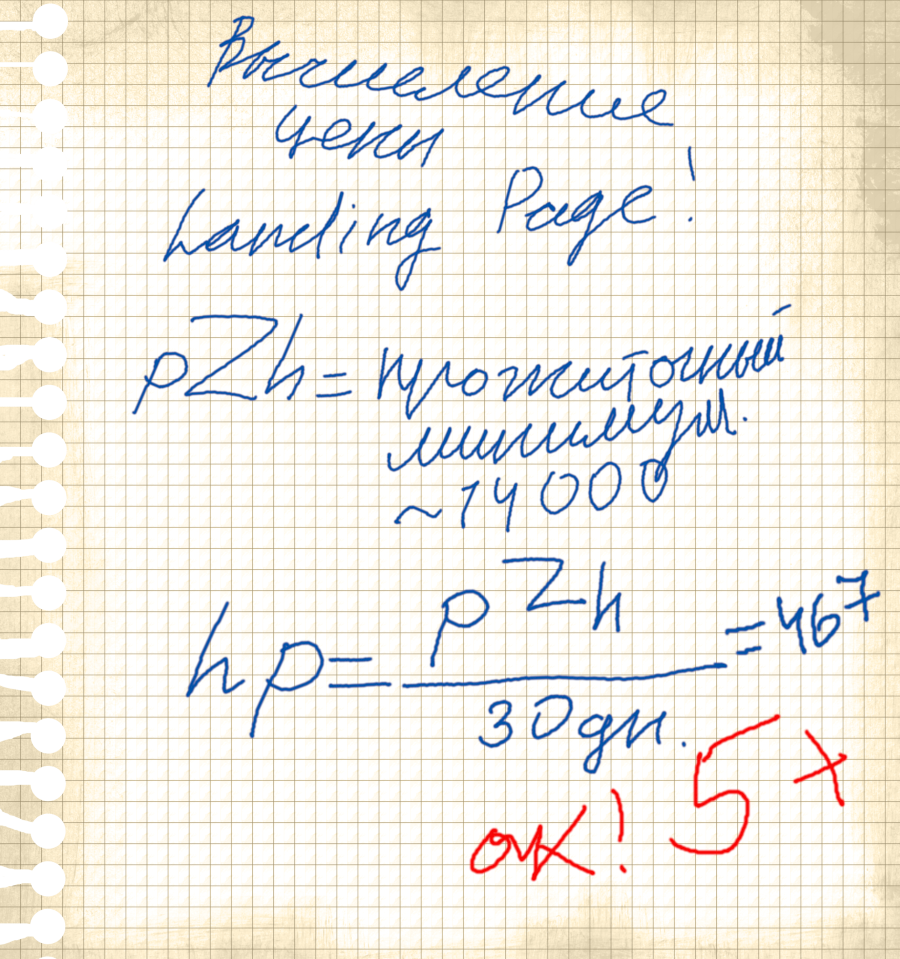 Вычисление
цены
Landing Page!
pZh = прожиточный
минимум.
~14000
hp = pZh / 30 дн. = 467
ок! 5+